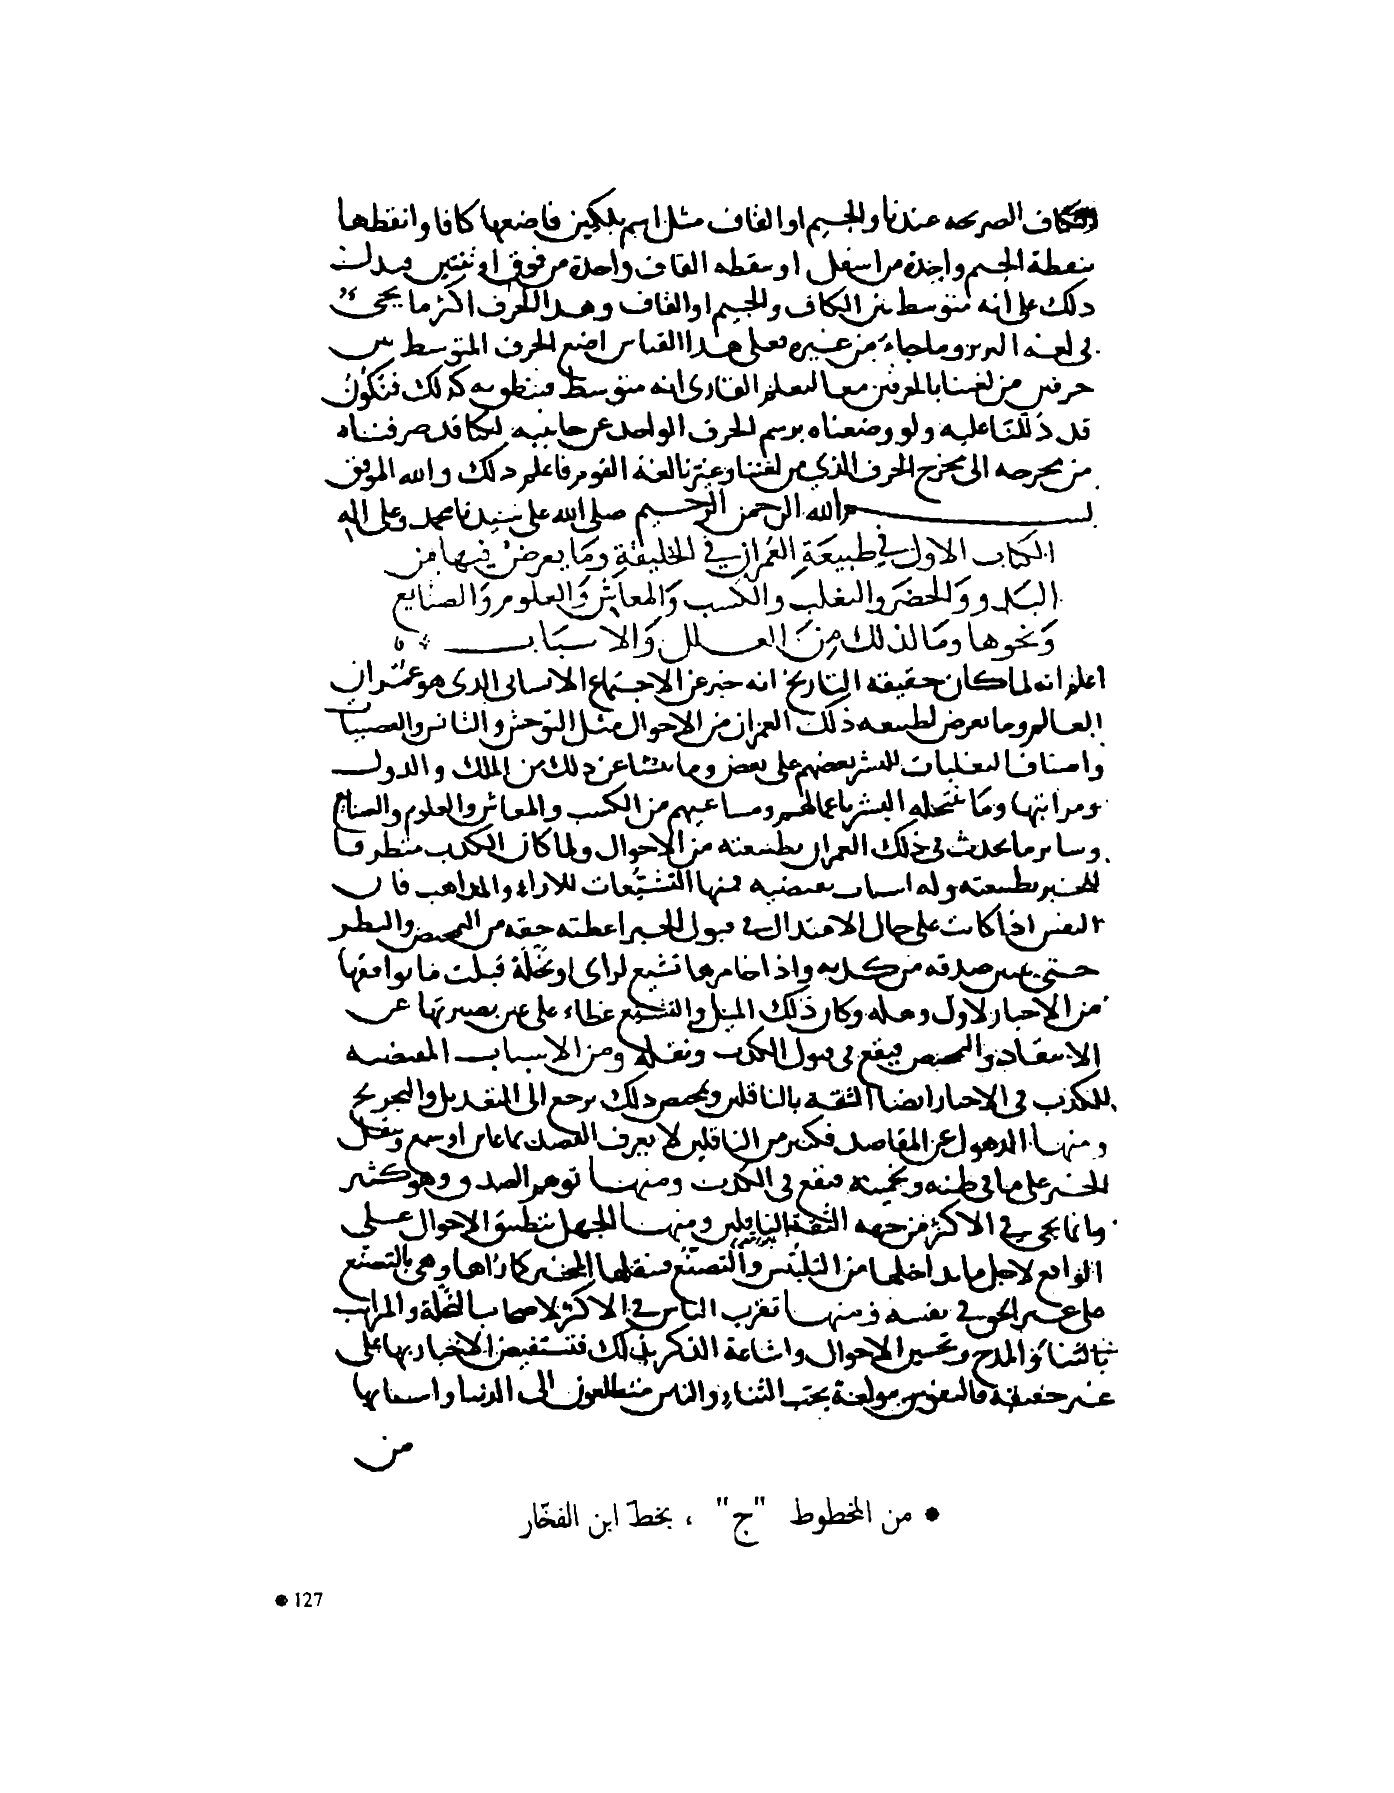 الكاف الصريحه عندنا والجيم او القاف مثل اسم بلكين فاضعها كافا وانقطها
بنقطة الجيم واحدة من اسفل او بنقطه القاف واحدة من فوق او ثنتين فيدل
ذلك على انه متوسط بين الكاف والجيم او القاف وهذا الحرف اكثر ما يجيء
في لغه البربر وما جاء من غيره فعلى هذا القياس اضع الحرف المتوسط بين
حرفين من لغتنا بالحرفين معا ليعلم القارى انه متوسط فينطق به كذلك فنكون
قد دللنا عليه ولو وضعناه برسم الحرف الواحد عن جانبيه لكنا قد صرفناه
من مخرجه الى مخرج الحرف الذي من لغتنا وغيرنا لغة القوم فاعلم ذلك والله الموفق
بسم الله الرحمن الرحيم صلى الله على سيدنا محمد وعلى اله
الكتاب الاول في طبيعة العمران في الخليقة وما يعرض فيها من
البدو والحضر والتغلب والكسب والمعاش والعلوم والصنايع
ونحوها وما لذلك من العلل والاسباب
اعلم انه لما كان حقيقه التاريخ انه خبر عن الاجتماع الانسانى الذى هو عمران
العالم وما يعرض لطبيعه ذلك العمران من الاحوال مثل التوحش والتانس والعصبيات
واصناف التغلبات للبشر بعضهم على بعض وما ينشا عن ذلك من الملك والدول
ومراتبها وما ينتحله البشر باعمالهم ومساعيهم من الكسب والمعاش والعلوم والصنايع
وساير ما يحدث في ذلك العمران بطبيعته من الاحوال ولما كان الكذب متطرقا
للخبر بطبيعته وله اسباب تقتضيه فمنها التشيعات للاراء والمذاهب فان
النفس اذا كانت على حال الاعتدال في قبول الخبر اعطته حقه من التمحيص والنظر
حتى يتبين صدقه من كذبه واذا خامرها تشيع لراى او نحلة قبلت ما يوافقها
من الاخبار لاول وهله وكان ذلك الميل والتشيع غطاء على عين بصيرتها عن
الانتقاد والتمحيص فيقع في قبول الكذب ونقله ومن الاسباب المقتضيه
للكذب في الاخبار ايضا الثقه بالناقلين وتمحيص ذلك يرجع الى التعديل والتجريح
ومنها الذهول عن المقاصد فكثير من الناقلين لا يعرف القصد بما عاين او سمع وينقل
الخبر على ما في ظنه وتخمينه فيقع في الكذب ومنها توهم الصدق وهو كثير
وانما يجي في الاكثر من جهه الثقة بالناقلين ومنها الجهل بتطبيق الاحوال على
الوقايع لاجل ما يداخلها من التلبيس والتصنع فينقلها المخبر كما راها وهي بالتصنع
على غير الحق في نفسه ومنها تقرب الناس في الاكثر لاصحاب التجلة والمراتب
بالثناء والمدح وتحسين الاحوال واشاعة الذكر بذلك فتستفيض الاخبار بها على
غير حقيقة فالنفوس مولعة بحب الثناء والناس متطلعون الى الدنيا واسبابها
من
• من المخطوط "ج" ، بخطّ ابن الفخّار
• 127